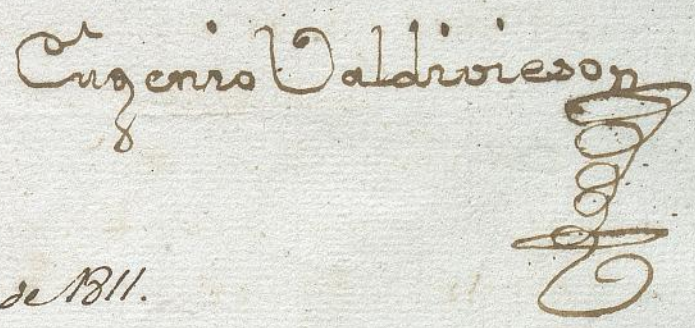 Eugenio Valdivieso
de 1811.